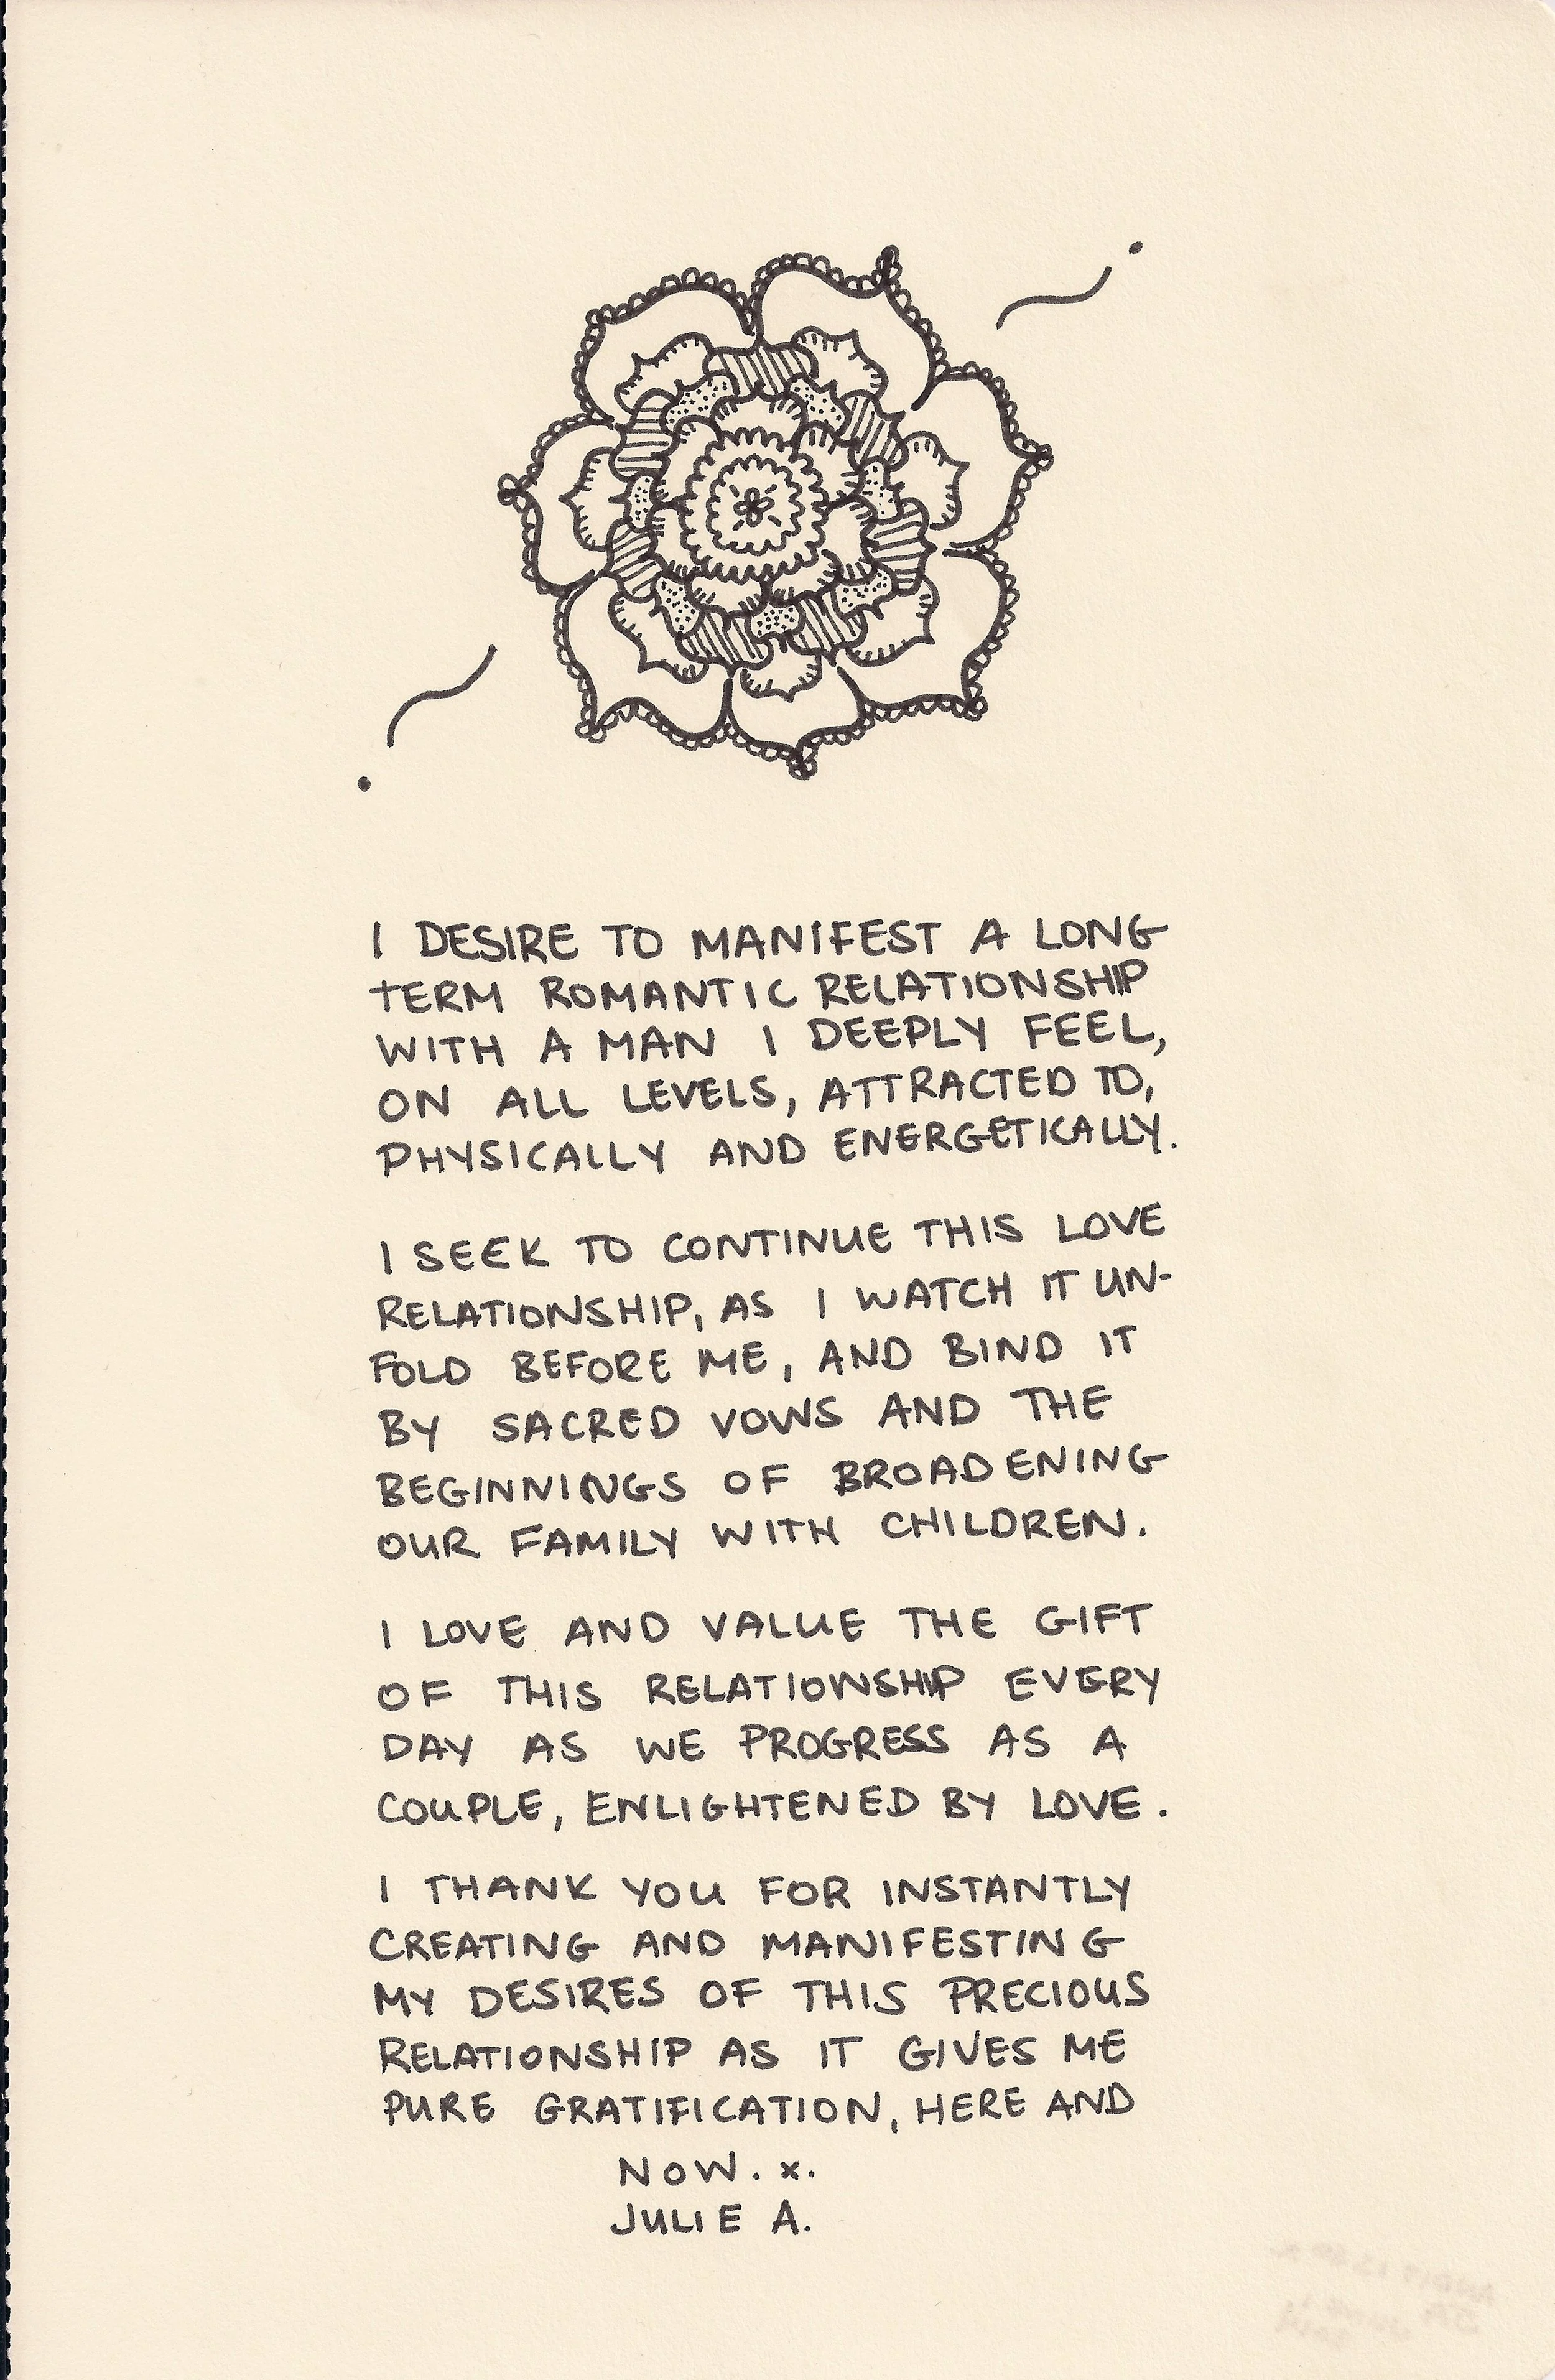 I DESIRE TO MANIFEST A LONG
TERM ROMANTIC RELATIONSHIP
WITH A MAN I DEEPLY FEEL,
ON ALL LEVELS, ATTRACTED TO,
PHYSICALLY AND ENERGETICALLY.
I SEEK TO CONTINUE THIS LOVE
RELATIONSHIP, AS I WATCH IT UN-
FOLD BEFORE ME, AND BIND IT
BY SACRED VOWS AND THE
BEGINNINGS OF BROADENING
OUR FAMILY WITH CHILDREN.
I LOVE AND VALUE THE GIFT
OF THIS RELATIONSHIP EVERY
DAY AS WE PROGRESS AS A
COUPLE, ENLIGHTENED BY LOVE.
I THANK YOU FOR INSTANTLY
CREATING AND MANIFESTING
MY DESIRES OF THIS PRECIOUS
RELATIONSHIP AS IT GIVES ME
PURE GRATIFICATION, HERE AND
NOW. x.
JULIE A.